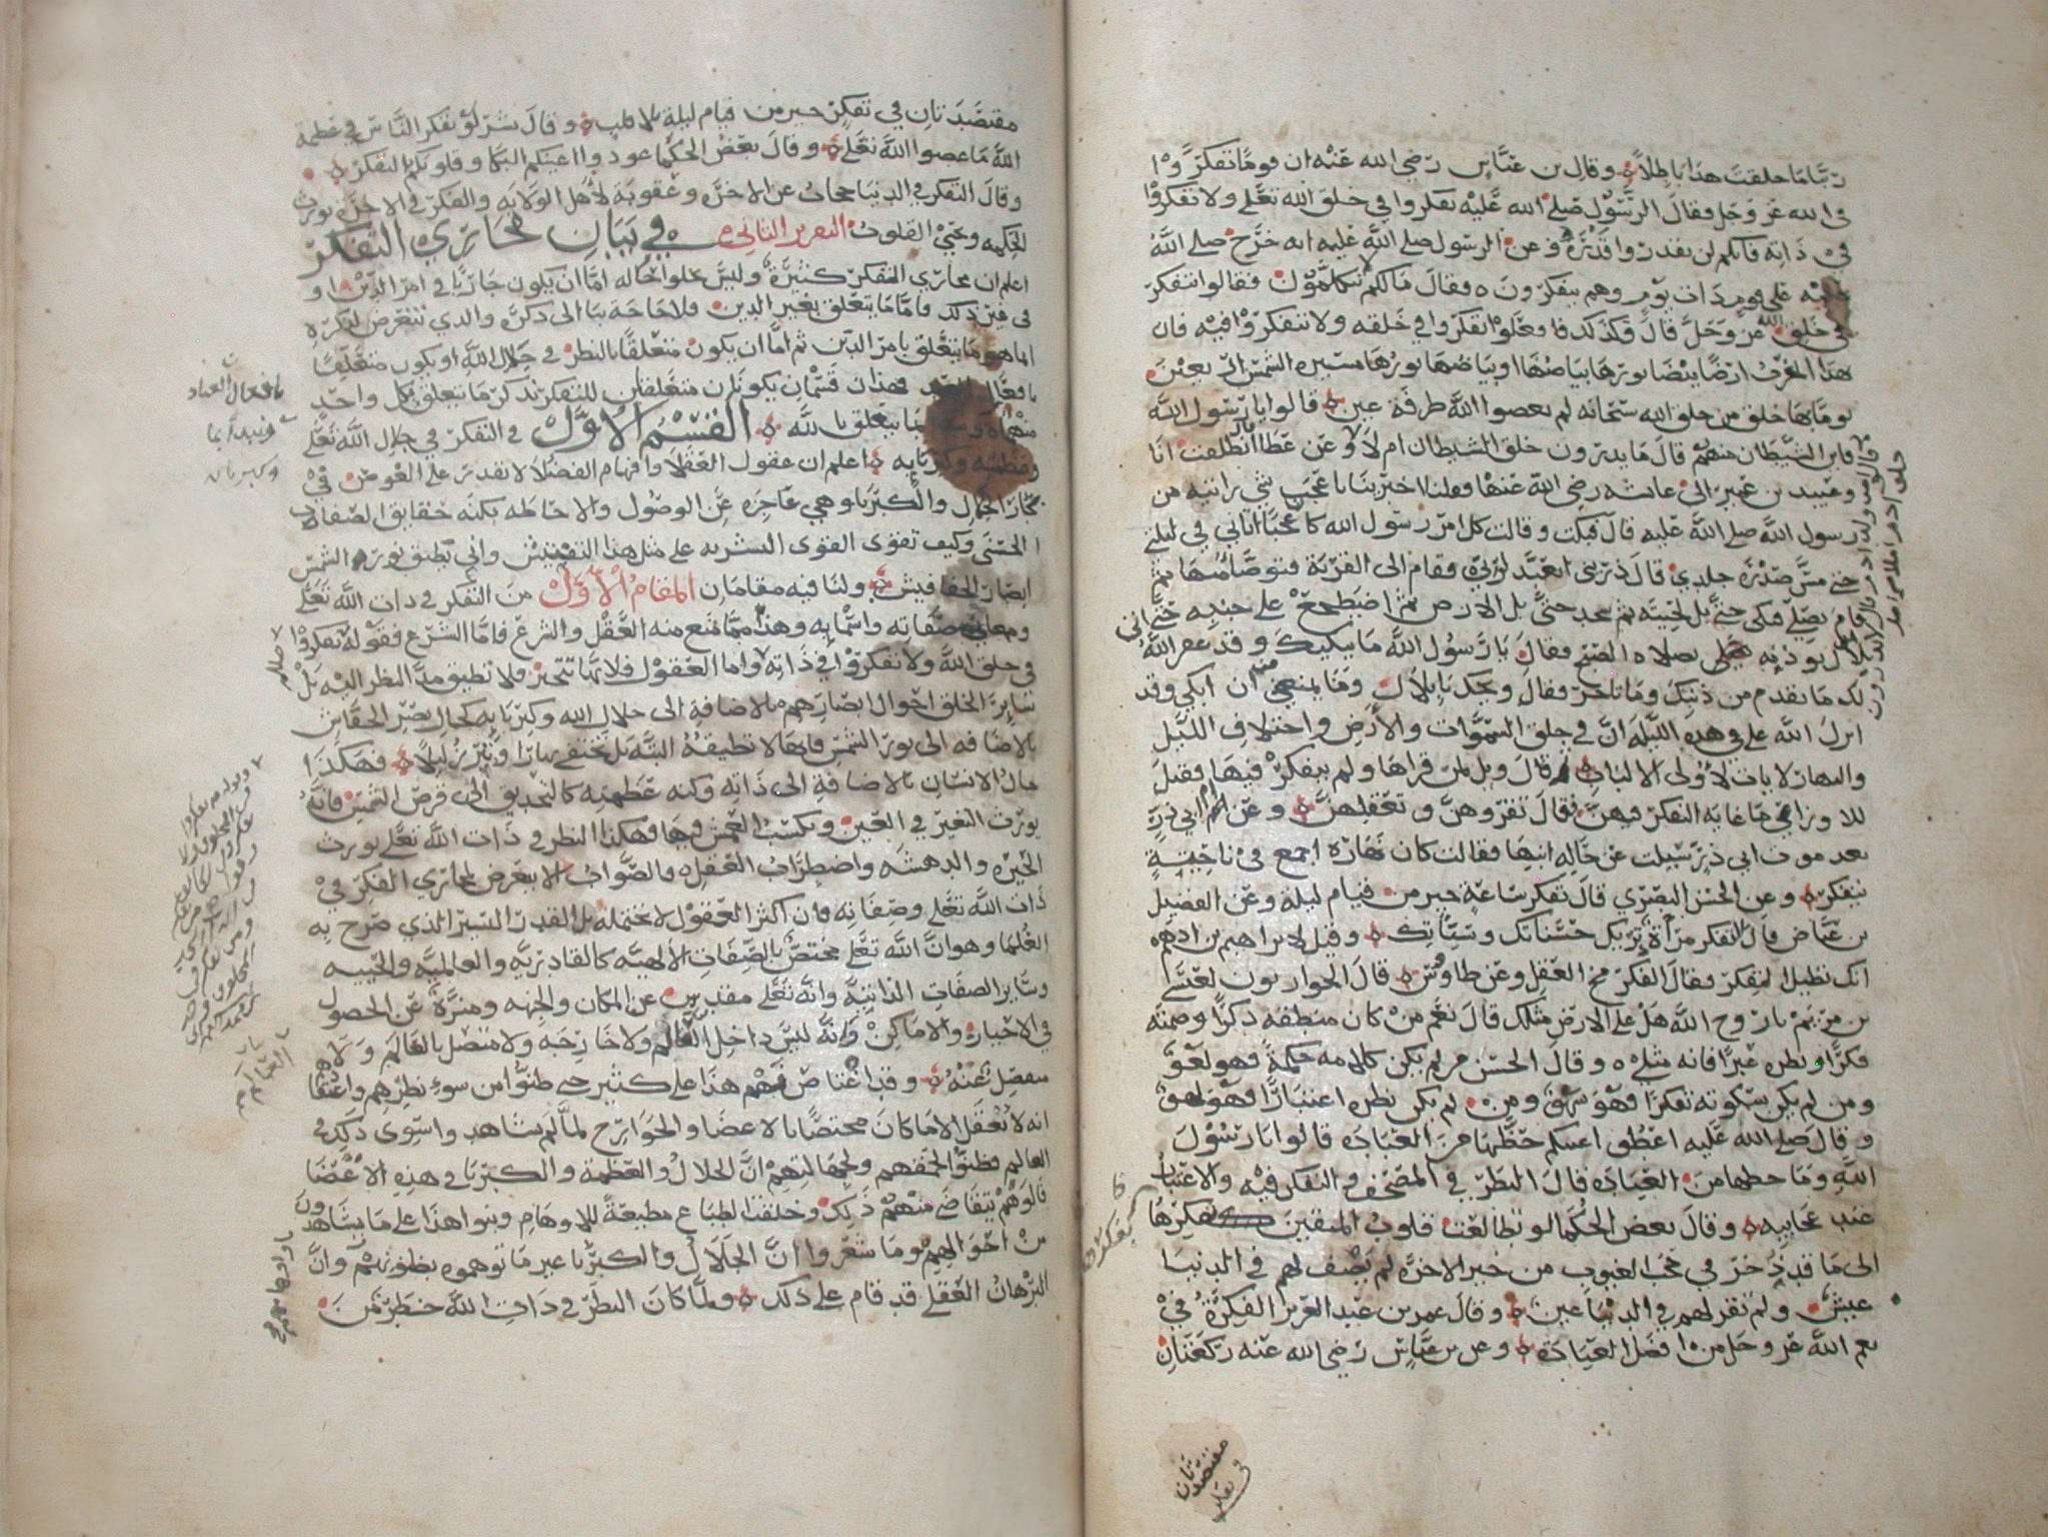 ربنا ما خلقت هذا باطلا وقال بن عباس رضي الله عنه ان قوما تفكروا
في الله عز وجل فقال الرسول صلى الله عليه تفكروا في خلق الله تعلى ولا تفكروا
في ذاته فانكم لن تقدروا قدره وعن الرسول صلى الله عليه انه خرج صلى الله
عليه على قوم ذات يوم وهم يتفكرون فقال مالكم لا تتكلمون فقالوا نتفكر
في خلق الله عز وجل قال فكذلك فافعلوا تفكروا في خلقه ولا تتفكروا فيه فان
هذا المغرب ارضا بيضا نورها بياضها او بياضها نورها مسيره الشمس اربعين
يوما بها خلق من خلق الله سبحانه لم يعصوا الله طرفة عين قالوا يا رسول الله
فاين الشيطان منهم قال ما يدرون خلق الشيطان ام لا وعن عطا انطلقت انا
وعبيد بن عمير الى عائشه رضي الله عنها وقلنا اخبرينا باعجب شي رايتيه من
رسول الله صلى الله عليه قال فبكت وقالت كل امر رسول الله كان عجبا اتاني في ليلتي
حتى مس صدره جلدي قال ذريني اتعبد لربي فقام الى القربة فتوضا منها ثم
قام يصلي فبكى حتى بل لحيته ثم سجد حتى بل الارض ثم اضطجع على جنبه حتى اتى
بلال يوذنه بصلاه الصبح فقال يا رسول الله ما يبكيك وقد غفر الله
لك ما تقدم من ذنبك وما تاخر فقال ويحك يا بلال وما يمنعني ان ابكي وقد
انزل الله علي في هذه الليله ان في خلق السموات والارض واختلاف الليل
والنهار لايات لاولى الالباب قال ويل لمن قراها ولم يتفكر فيها فقيل
للاوزاعي ما غايه التفكر فيهن فقال تقروهن وتعقلهن وعن ام ابي ذر
بعد موت ابي ذر سيلت عن حاله ابنها فقالت كان نهاره اجمع في ناحية
يتفكر وعن الحسن البصري قال تفكر ساعة خير من قيام ليلة وعن الفضيل
بن عياض قال الفكر مرآة تريك حسناتك وسيئاتك وقيل لابراهيم بن ادهم
انك تطيل الفكر فقال الفكر مخ العقل وعن طاوس قال الحواريون لعيسى
بن مريم يا روح الله هل على الارض مثلك قال نعم من كان منطقه ذكرا وصمته
فكرا ونظره عبرا فانه مثلي وقال الحسن من لم يكن كلامه حكمة فهو لغو
ومن لم يكن سكوته تفكرا فهو سهو ومن لم يكن نظره اعتبارا فهو لهو
وقال صلى الله عليه اعطوا اعينكم حظها من العبادة قالوا يا رسول
الله وما حظها من العبادة قال النظر في المصحف والتفكر فيه والاعتبار
عند عجايبه وقال بعض الحكما لو تطالعت قلوب المتقين بفكرها
الى ما قد ذخر في حجب الغيوب من خير الاخره لم يصف لهم في الدنيا
عيش ولم تقر لهم في الدنيا عين وقال عمر بن عبد العزيز الفكرة في
نعم الله عز وجل من افضل العبادة وعن بن عباس رضي الله عنه ركعتان
مقتصدتان
في تفكر
مقتصدتان في تفكر خير من قيام ليلة بلا قلب وقال بشر لو تفكر الناس في عظمة
الله ما عصوا الله تعلى وقال بعض الحكما عودوا اعينكم البكا وقلوبكم التفكر
وقال التفكر في الدنيا حجاب عن الاخرة وعقوبة لاهل الولايه والفكر في الاخرة يورث
الحكمه ويحيي القلوب التقرير الثاني في بيان مجاري التفكر
اعلم ان مجاري التفكر كثيرة وليس يخلوا حاله اما ان يكون جاريا في امر الدين او
في غير ذلك فاما ما يتعلق بغير الدين فلا حاجة بنا الى ذكره والذي نتعرض لذكره
انما هو ما يتعلق بامر الدين ثم اما ان يكون متعلقا بالنظر في جلال الله او يكون متعلقا
بافعال فهذان قسمان يكونان متعلقان للتفكر نذكر ما يتعلق بكل واحد
منهما بما يتعلق بالله القسم الاول في التفكر في جلال الله تعلى
وعظمته وكبريايه اعلم ان عقول العقلا وافهام الفضلا لا تقدر على الغوص في
بحار الجمال والكبريا وهي عاجزه عن الوصول والاحاطه بكنه حقايق الصفات
الحسنى وكيف تقوى القوى البشريه على مثل هذا التفتيش وانى تطيق نور الشمس
ابصار الخفافيش ولنا فيه مقامان المقام الاول من التفكر في ذات الله تعلى
ومعاني صفاته واسمايه وهذا مما يمنع منه العقل والشرع فاما الشرع فقوله تفكروا
في خلق الله ولا تفكروا في ذاته واما العقول فلانها تتحير فلا تطيق مد النظر اليه بل
ساير الخلق احوال ابصارهم بالاضافة الى جلال الله وكبريايه كحال بصر الخفاش
بالاضافه الى نور الشمس فانها لا تطيقه البته بل يختفي نهارا ويبرز ليلا فهكذا
حال الانسان بالاضافة الى ذاته وكنه عظمته كالتحديق الى قرص الشمس فانه
يورث التغير في العين ويكسب العمش فيها فهكذا النظر في ذات الله تعلى يورث
الحيره والدهشه واضطراب العقل والصواب الا يتعرض لمجاري الفكر في
ذات الله تعلى وصفاته فان اكثر العقول لا تحتمله بل القدر اليسير الذي صرح به
العلما وهو ان الله تعلى مختص بالصفات الالهيه كالقادريه والعالميه والحييه
وساير الصفات الذاتية وانه تعلى مقدس عن المكان والجهه ومنزه عن الحصول
في الاحياز والاماكن وانه ليس داخل العالم ولا خارجه ولا متصل بالعالم ولا هو
منفصل عنه وقد اعتاص فهم هذا على كثير حتى ظنوا من سوء نظرهم واعتقدوا
انه لا يعقل الا ما كان مختصا بالاعضا والجوارح لما لم يشاهدوا سوى ذلك في
العالم فظنوا لحمقهم ولجهالتهم ان الجلال والعظمة والكبريا في هذه الاعضا
فالوهم يتقاضى منهم ذلك وخلقت الطباع مطيعة للاوهام وبنوا هذا على ما يشاهدون
من احوالهم وما شعروا ان الجلال والكبريا غير ما توهموه بظنونهم وان
البرهان العقلي قد قام على ذلك ولما كان النظر في ذات الله خطر من
بافعال العباد